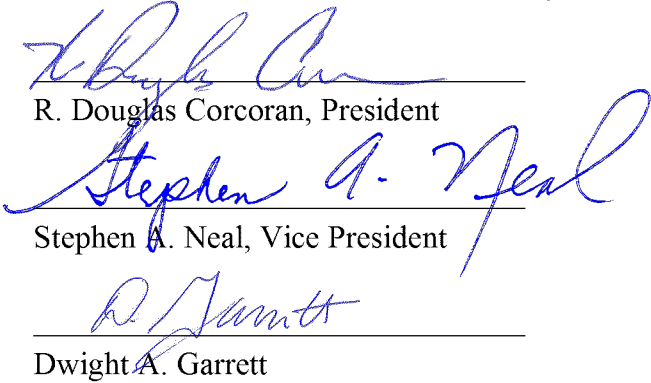 R. Douglas Cor
R. Douglas Corcoran, President
Stephen A. Neal
Stephen A. Neal, Vice President
D. Garrett
Dwight A. Garrett